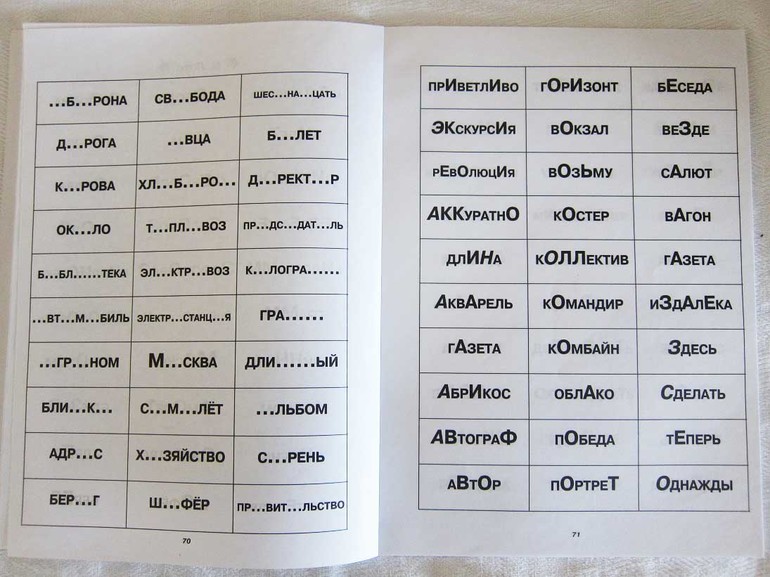 ...Б...РОНА СВ...БОДА ШЕС...НА...ЦАТЬ
Д...РОГА ...ВЦА Б...ЛЕТ
К...РОВА ХЛ...Б...РО... Д...РЕКТ...Р
ОК...ЛО Т...ПЛ...ВОЗ ПР...ДС...ДАТ...ЛЬ
Б...БЛ......ТЕКА ЭЛ...КТР...ВОЗ К...ЛОГРА......
...ВТ...М...БИЛЬ ЭЛЕКТР...СТАНЦ...Я ГРА......
...ГР...НОМ М...СКВА ДЛИ......ЫЙ
БЛИ...К... С...М...ЛЁТ ...ЛЬБОМ
АДР...С Х...ЗЯЙСТВО С...РЕНЬ
БЕР...Г Ш...ФЁР ПР...ВИТ...ЛЬСТВО
70
прИветлИво гОРИзонт бЕседа
ЭКскурсИя вОкзал веЗде
рЕвОлюцИя вОзЬму сАлют
АККуратнО кОстер вАгон
длИНа кОЛЛектив гАзета
АквАрель кОмандир иЗдАлЕка
гАзета кОмбайн Здесь
АбрИкос облАко Сделать
АВтограФ пОбеда тЕперь
аВтОр пОртреТ Однажды
71